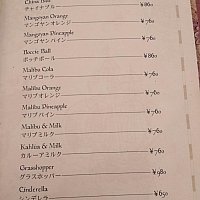 China Blue
チャイナブルー ¥860
Mangoyan Orange
マンゴヤンオレンジ ¥760
Mangoyan Pineapple
マンゴヤンパイン ¥760
Boccie Ball
ボッチボール ¥860
Malibu Cola
マリブコーラ ¥760
Malibu Orange
マリブオレンジ ¥760
Malibu Pineapple
マリブパイン ¥760
Malibu & Milk
マリブミルク ¥760
Kahlúa & Milk
カルーアミルク ¥760
Grasshopper
グラスホッパー ¥980
Cinderella
シンデレラ ¥650